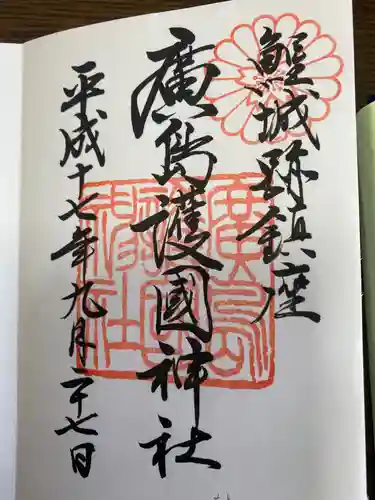 鯉城跡鎮座
廣島護國神社
平成十七年九月二十七日